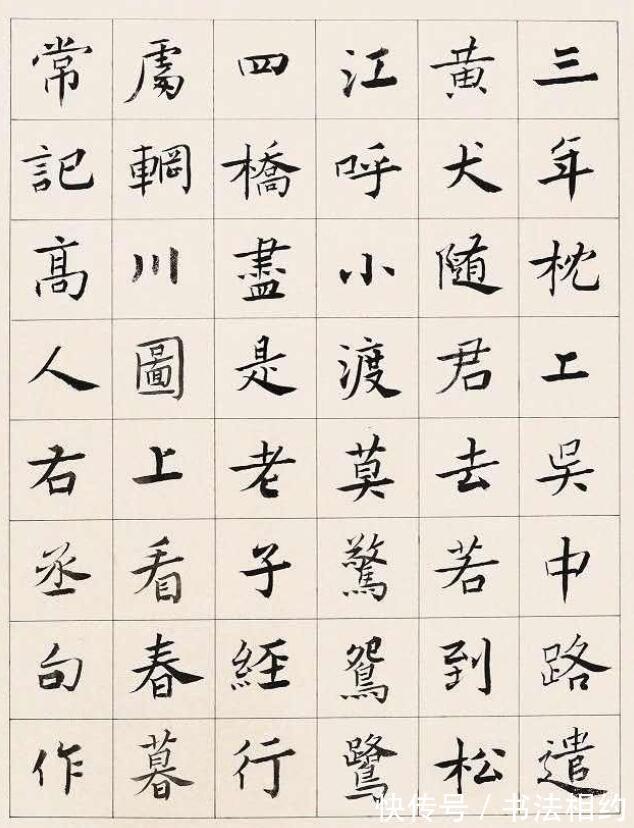 三年枕上吳中路遣
黄犬隨君去若到松
江呼小渡莫驚鴛鷺
四橋盡是老子經行
處輞川圖上看春暮
常記高人右丞句作
快传号 / 书法相约